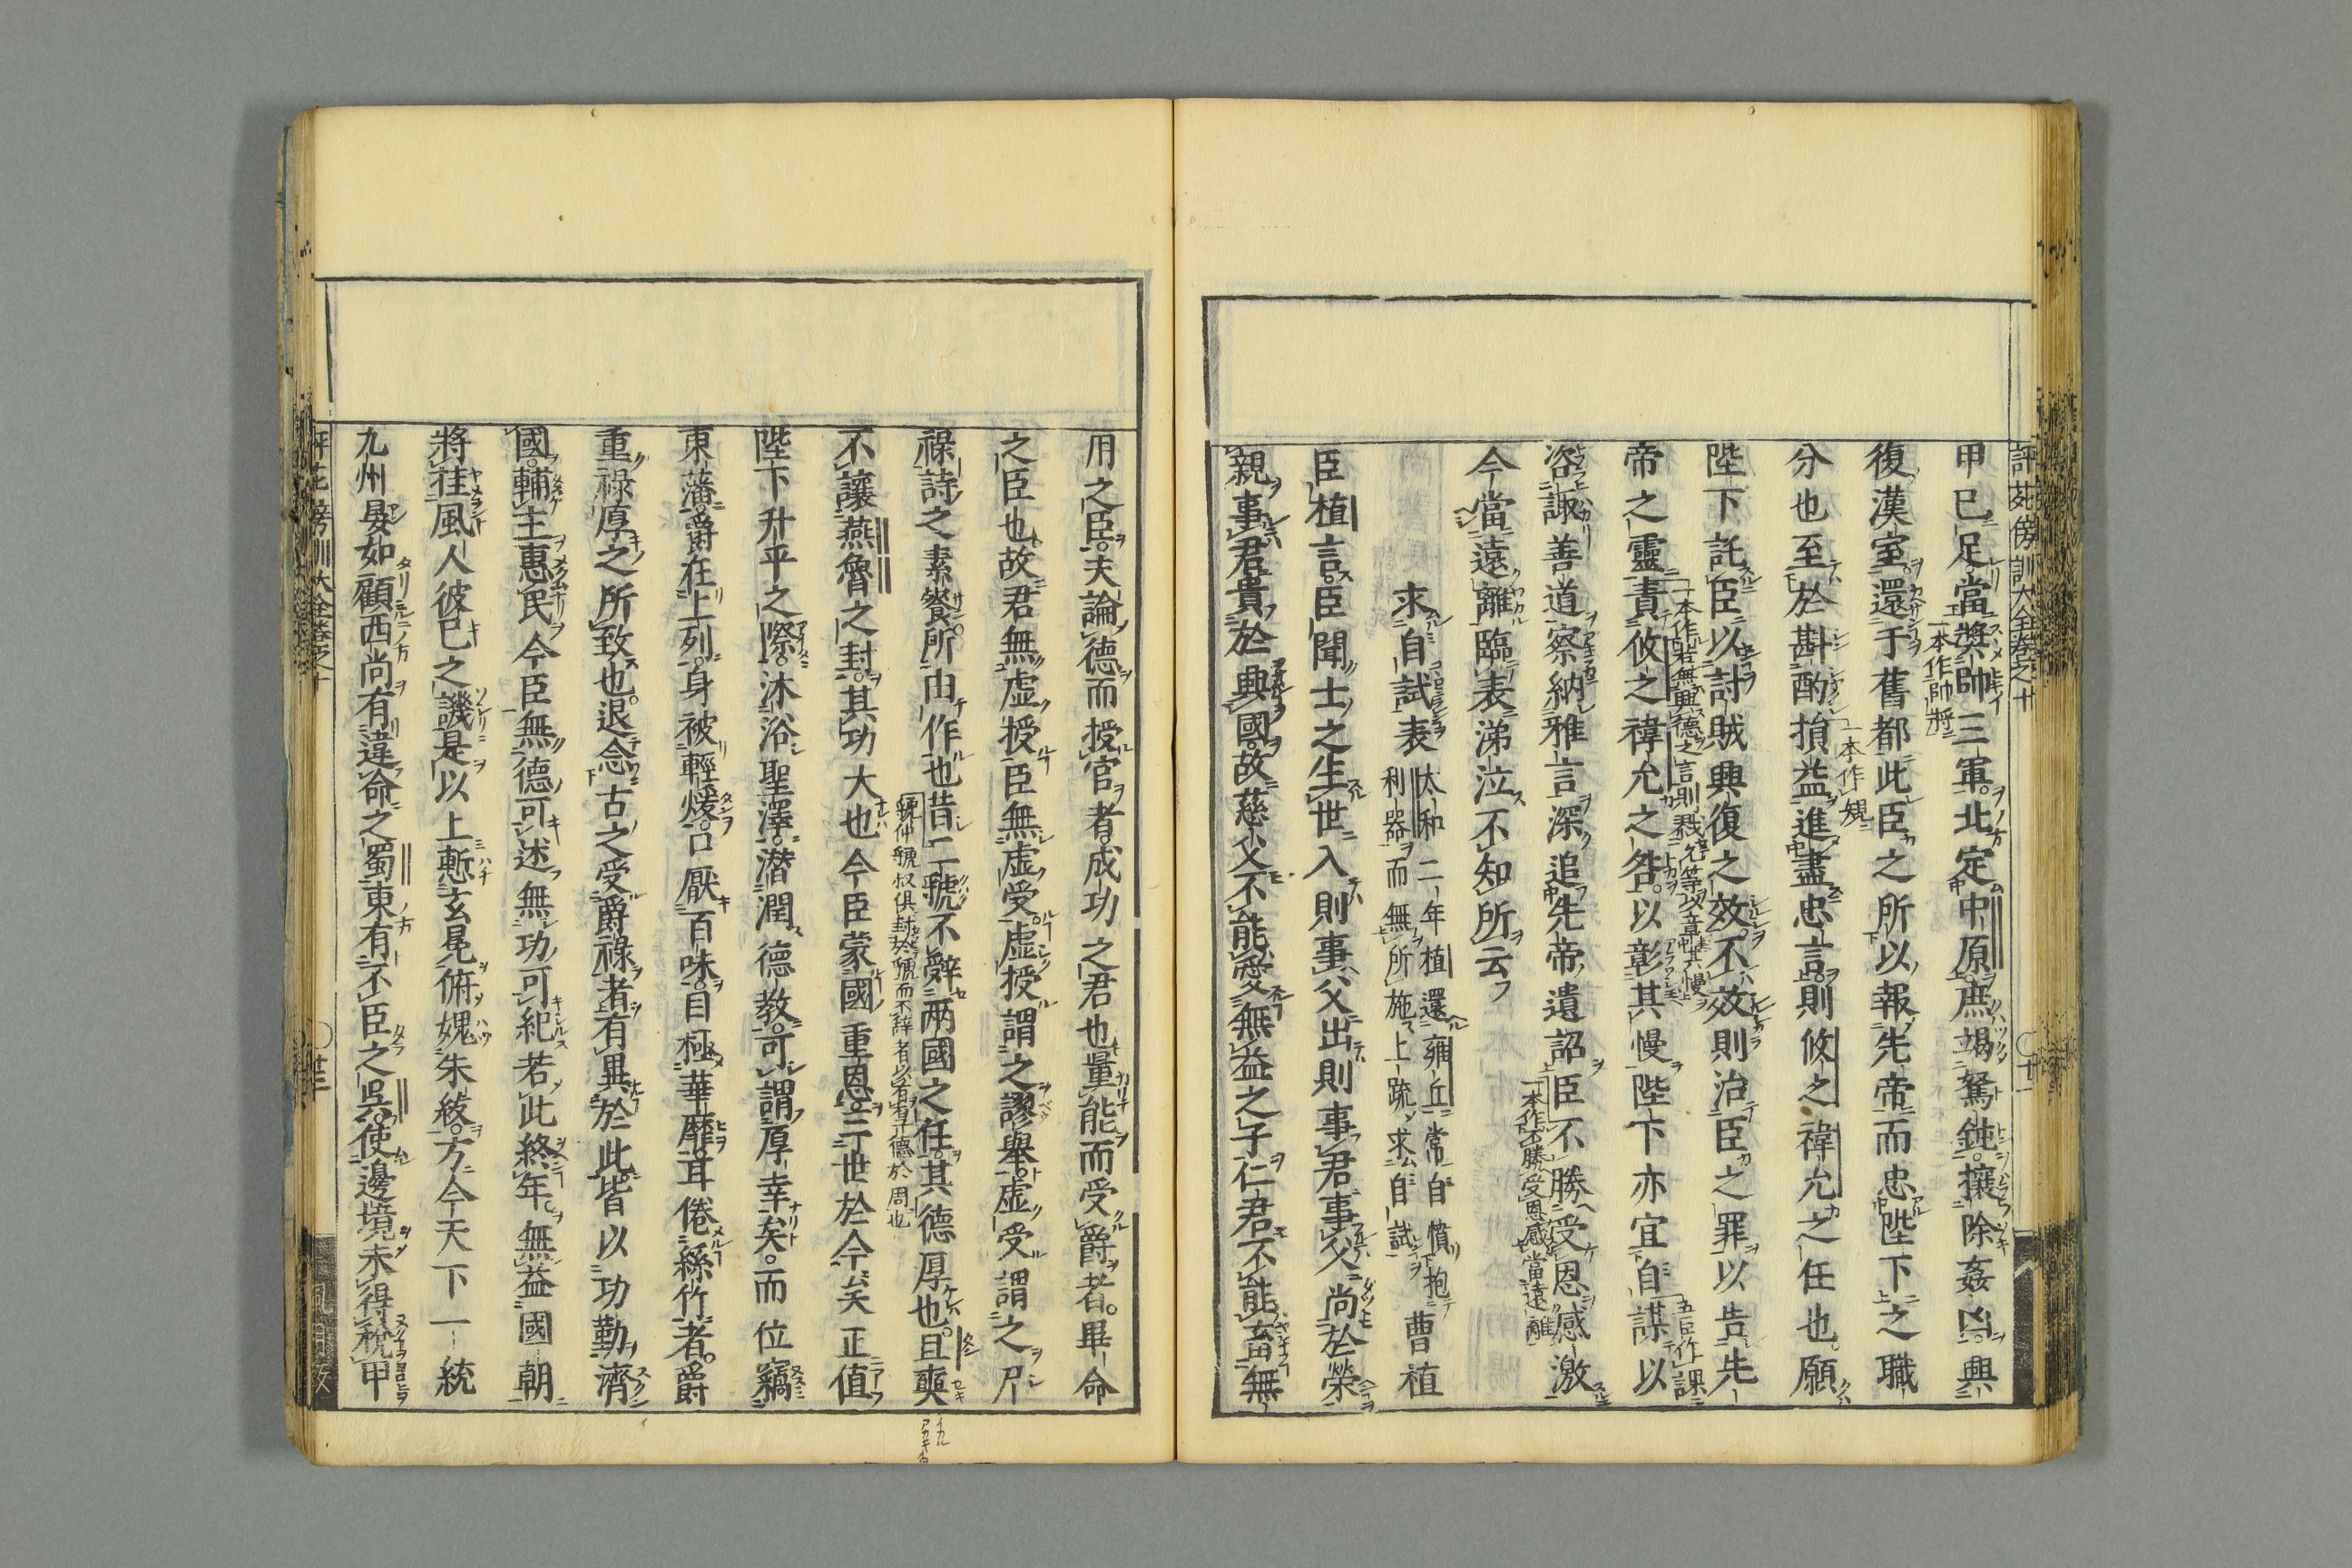 評苑傍訓大全卷之十
十一
甲已足當奬帥三軍北定中原庶竭駑鈍攘除姦凶興
一本作帥將
復漢室還于舊都此臣之所以報先帝而忠陛下之職
一本作規
分也至於斟酌損益進盡忠言則攸之禕允之任也願
陛下託臣以討賊興復之效不效則治臣之罪以告先
一本作若無興德之言則戮允等以章其慢
五臣作課
帝之靈責攸之禕允之咎以彰其慢陛下亦宜自謀以
咨諏善道察納雅言深追先帝遺詔臣不勝受恩感激
一本作不勝受恩感當遠離
今當遠離臨表涕泣不知所云
求自試表
太和二年植還雍丘常自憤抱
利器而無所施上疏求自試
曹植
臣植言臣聞士之生世入則事父出則事君事父尚於榮
親事君貴於興國故慈父不能愛無益之子仁君不能畜無
用之臣夫論德而授官者成功之君也量能而受爵者畢命
之臣也故君無虛授臣無虛受虛授謂之謬舉虛受謂之尸
祿詩之素餐所由作也昔二虢不辭兩國之任其德厚也且奭
虢仲虢叔俱封於虢而不辭者以有厚德於周也
不讓燕魯之封其功大也今臣蒙國重恩三世於今矣正值
陛下升平之際沐浴聖澤潛潤德教可謂厚幸矣而位竊
東藩爵在上列身被輕煖口厭百味目極華靡耳倦絲竹者爵
重祿厚之所致也退念古之受爵祿者有異於此皆以功勤濟
國輔主惠民今臣無德可述無功可紀若此終年無益國朝
將挂風人彼已之譏是以上慙玄冕俯媿朱紱方今天下一統
九州晏如顧西尚有違命之蜀東有不臣之吳使邊境未得稅甲